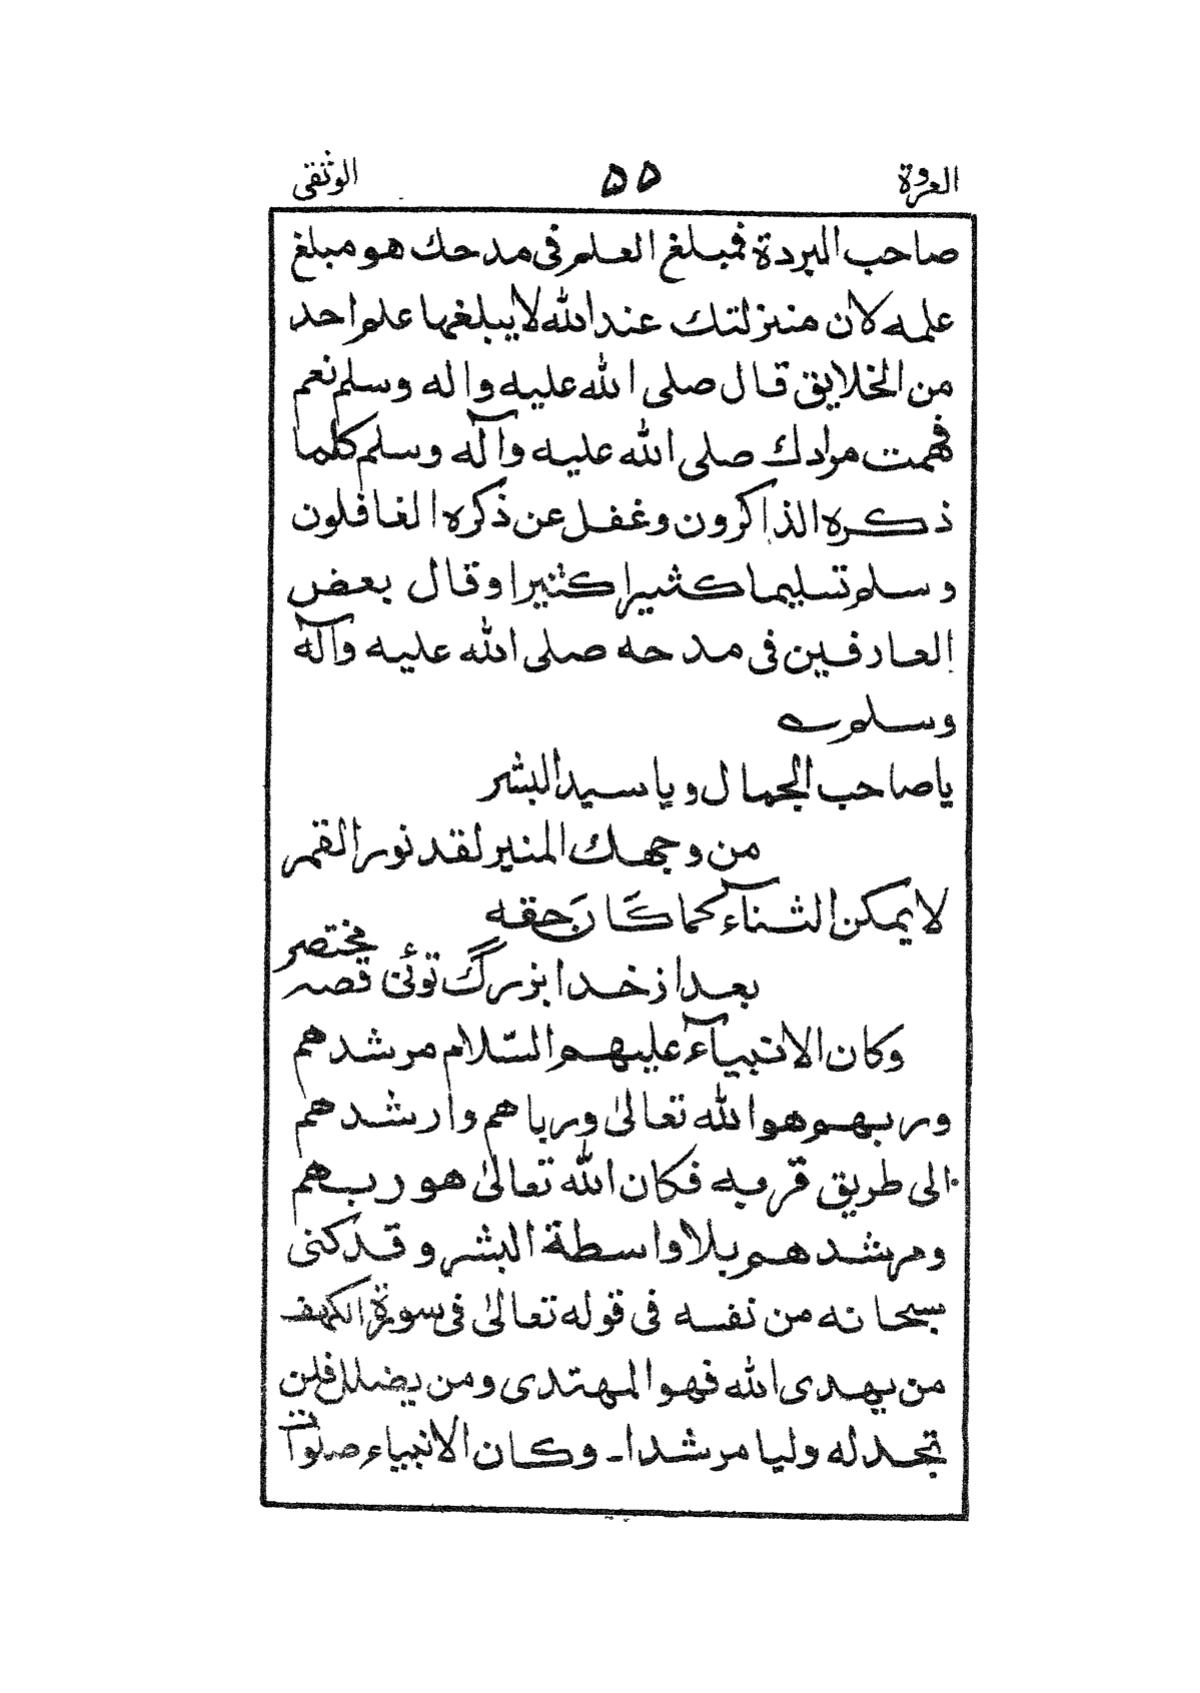 العروة ۵۵ الوثقى
صاحب البردة فمبلغ العلم فى مدحك هو مبلغ
علمه لان منزلتك عند الله لا يبلغها علم احد
من الخلايق قال صلى الله عليه واله وسلم نعم
فهمت مرادك صلى الله عليه وآله وسلم كلما
ذكره الذاكرون وغفل عن ذكره الغافلون
وسلم تسليما كثيرا كثيرا وقال بعض
العارفين فى مدحه صلى الله عليه وآله
وسلم ؎
يا صاحب الجمال ويا سيد البشر
من وجهك المنير لقد نور القمر
لا يمكن الثنآء كما كَانَ حقه
بعد از خدا بزرگ توئى قصه مختصر
وكان الانبيآء عليهم السّلام مرشدهم
وربهم هو الله تعالىٰ ورباهم وارشدهم
الى طريق قربه فكان الله تعالىٰ هو ربهم
ومرشدهم بلا واسطة البشر وقد كنى
سبحانه من نفسه فى قوله تعالىٰ فى سورة الكهف
من يهدى الله فهو المهتدى ومن يضلل فلن
تجد له وليا مرشدا۔ وكان الانبياء صلوات